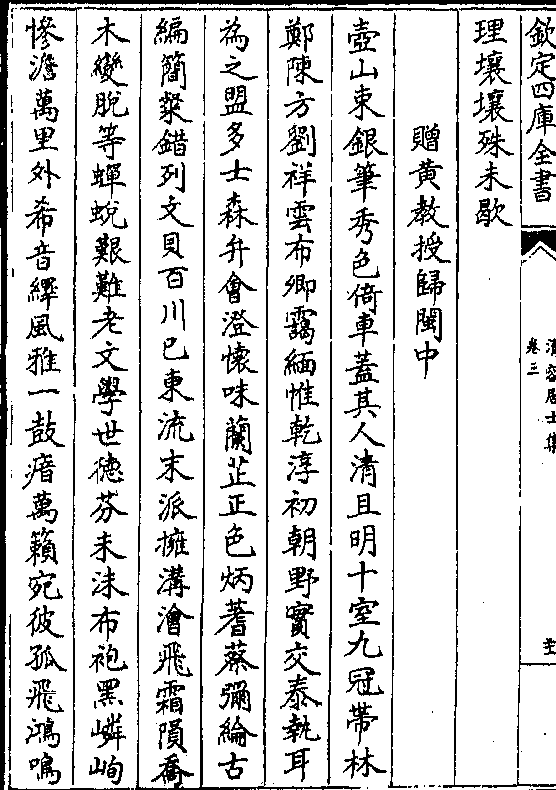 欽定四庫全書
清容居士集
卷三
理壤壤殊未歇
贈黃教授歸閩中
壺山東銀筆秀色倚車蓋其人清且明十室九冠帶林
鄭陳方劉祥雲布卿靄緬惟乾淳初朝野實交泰執耳
為之盟多士森弁會澄懷味蘭芷正色炳蓍蔡彌綸古
編簡粲錯列文貝百川已東流末派擁溝澮飛霜隕喬
木變脫等蟬蛻艱難老文學世德芬未沬布袍黑嶙峋
慘澹萬里外希音繹風雅一鼓瘖萬籟宛彼孤飛鴻鳴